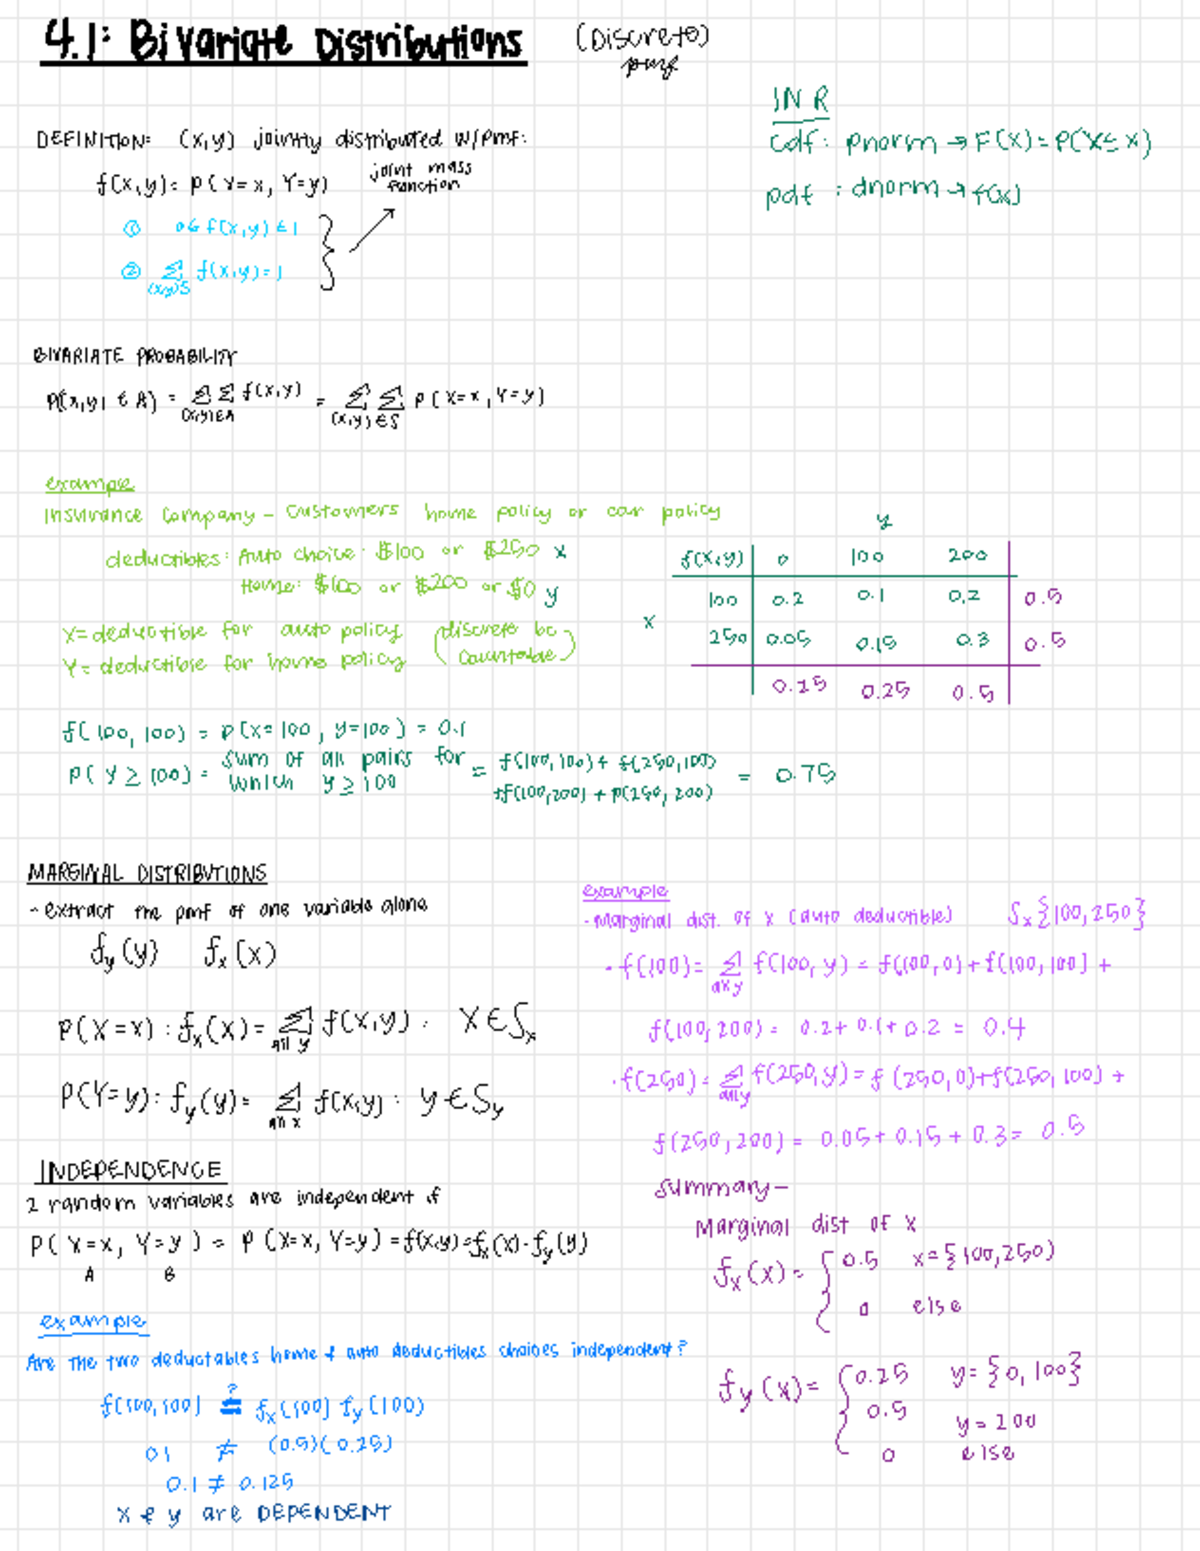 4.1: Bivariate Distributions (Discrete)
pmf
IN R
cdf: pnorm → F(x) = P(X ≤ x)
pdf : dnorm → f(x)
DEFINITION: (x,y) jointly distributed w/pmf:
f(x,y) = P(X=x, Y=y) joint mass function
① 0 ≤ f(x,y) ≤ 1
② ∑ f(x,y) = 1
(x,y)∈S
BIVARIATE PROBABILITY
P((x,y) ∈ A) = ∑∑ f(x,y) = ∑∑ P(X=x, Y=y)
(x,y)∈A (x,y)∈S
example
Insurance Company - customers home policy or car policy
deductibles: Auto choice: $100 or $250 x
Home: $100 or $200 or $0 y
X = deductible for auto policy (discrete bc
Y = deductible for home policy countable)
y
f(x,y) 0 100 200
x 100 0.2 0.1 0.2 0.5
250 0.05 0.15 0.3 0.5
0.25 0.25 0.5
f(100, 100) = P(X=100, Y=100) = 0.1
P(Y ≥ 100) = sum of all pairs for which y ≥ 100 = f(100,100) + f(250,100)
+f(100,200) + P(250,200) = 0.75
MARGINAL DISTRIBUTIONS
- extract the pmf of one variable alone
fy(y) fx(x)
P(X=x) : fx(x) = ∑ f(x,y) : x ∈ Sx
all y
P(Y=y) : fy(y) = ∑ f(x,y) : y ∈ Sy
all x
example
- Marginal dist. of x (auto deductible) Sx{100,250}
· f(100) = ∑ f(100, y) = f(100,0) + f(100,100) +
all y
f(100,200) = 0.2 + 0.1 + 0.2 = 0.4
· f(250) = ∑ f(250,y) = f(250,0)+f(250,100) +
all y
f(250,200) = 0.05 + 0.15 + 0.3 = 0.5
summary-
Marginal dist of x
fx(x) = { 0.5 x = {100,250)
0 else
fy(x) = { 0.25 y = {0,100}
0.5 y = 200
0 else
INDEPENDENCE
2 random variables are independent if
P(X=x, Y=y) = P(X=x, Y=y) = f(x,y) = fx(x) · fy(y)
A B
example
Are the two deductables home & auto deductibles choices independent?
f(100,100) ?= fx(100) fy(100)
0.1 ≠ (0.5)(0.25)
0.1 ≠ 0.125
x & y are DEPENDENT